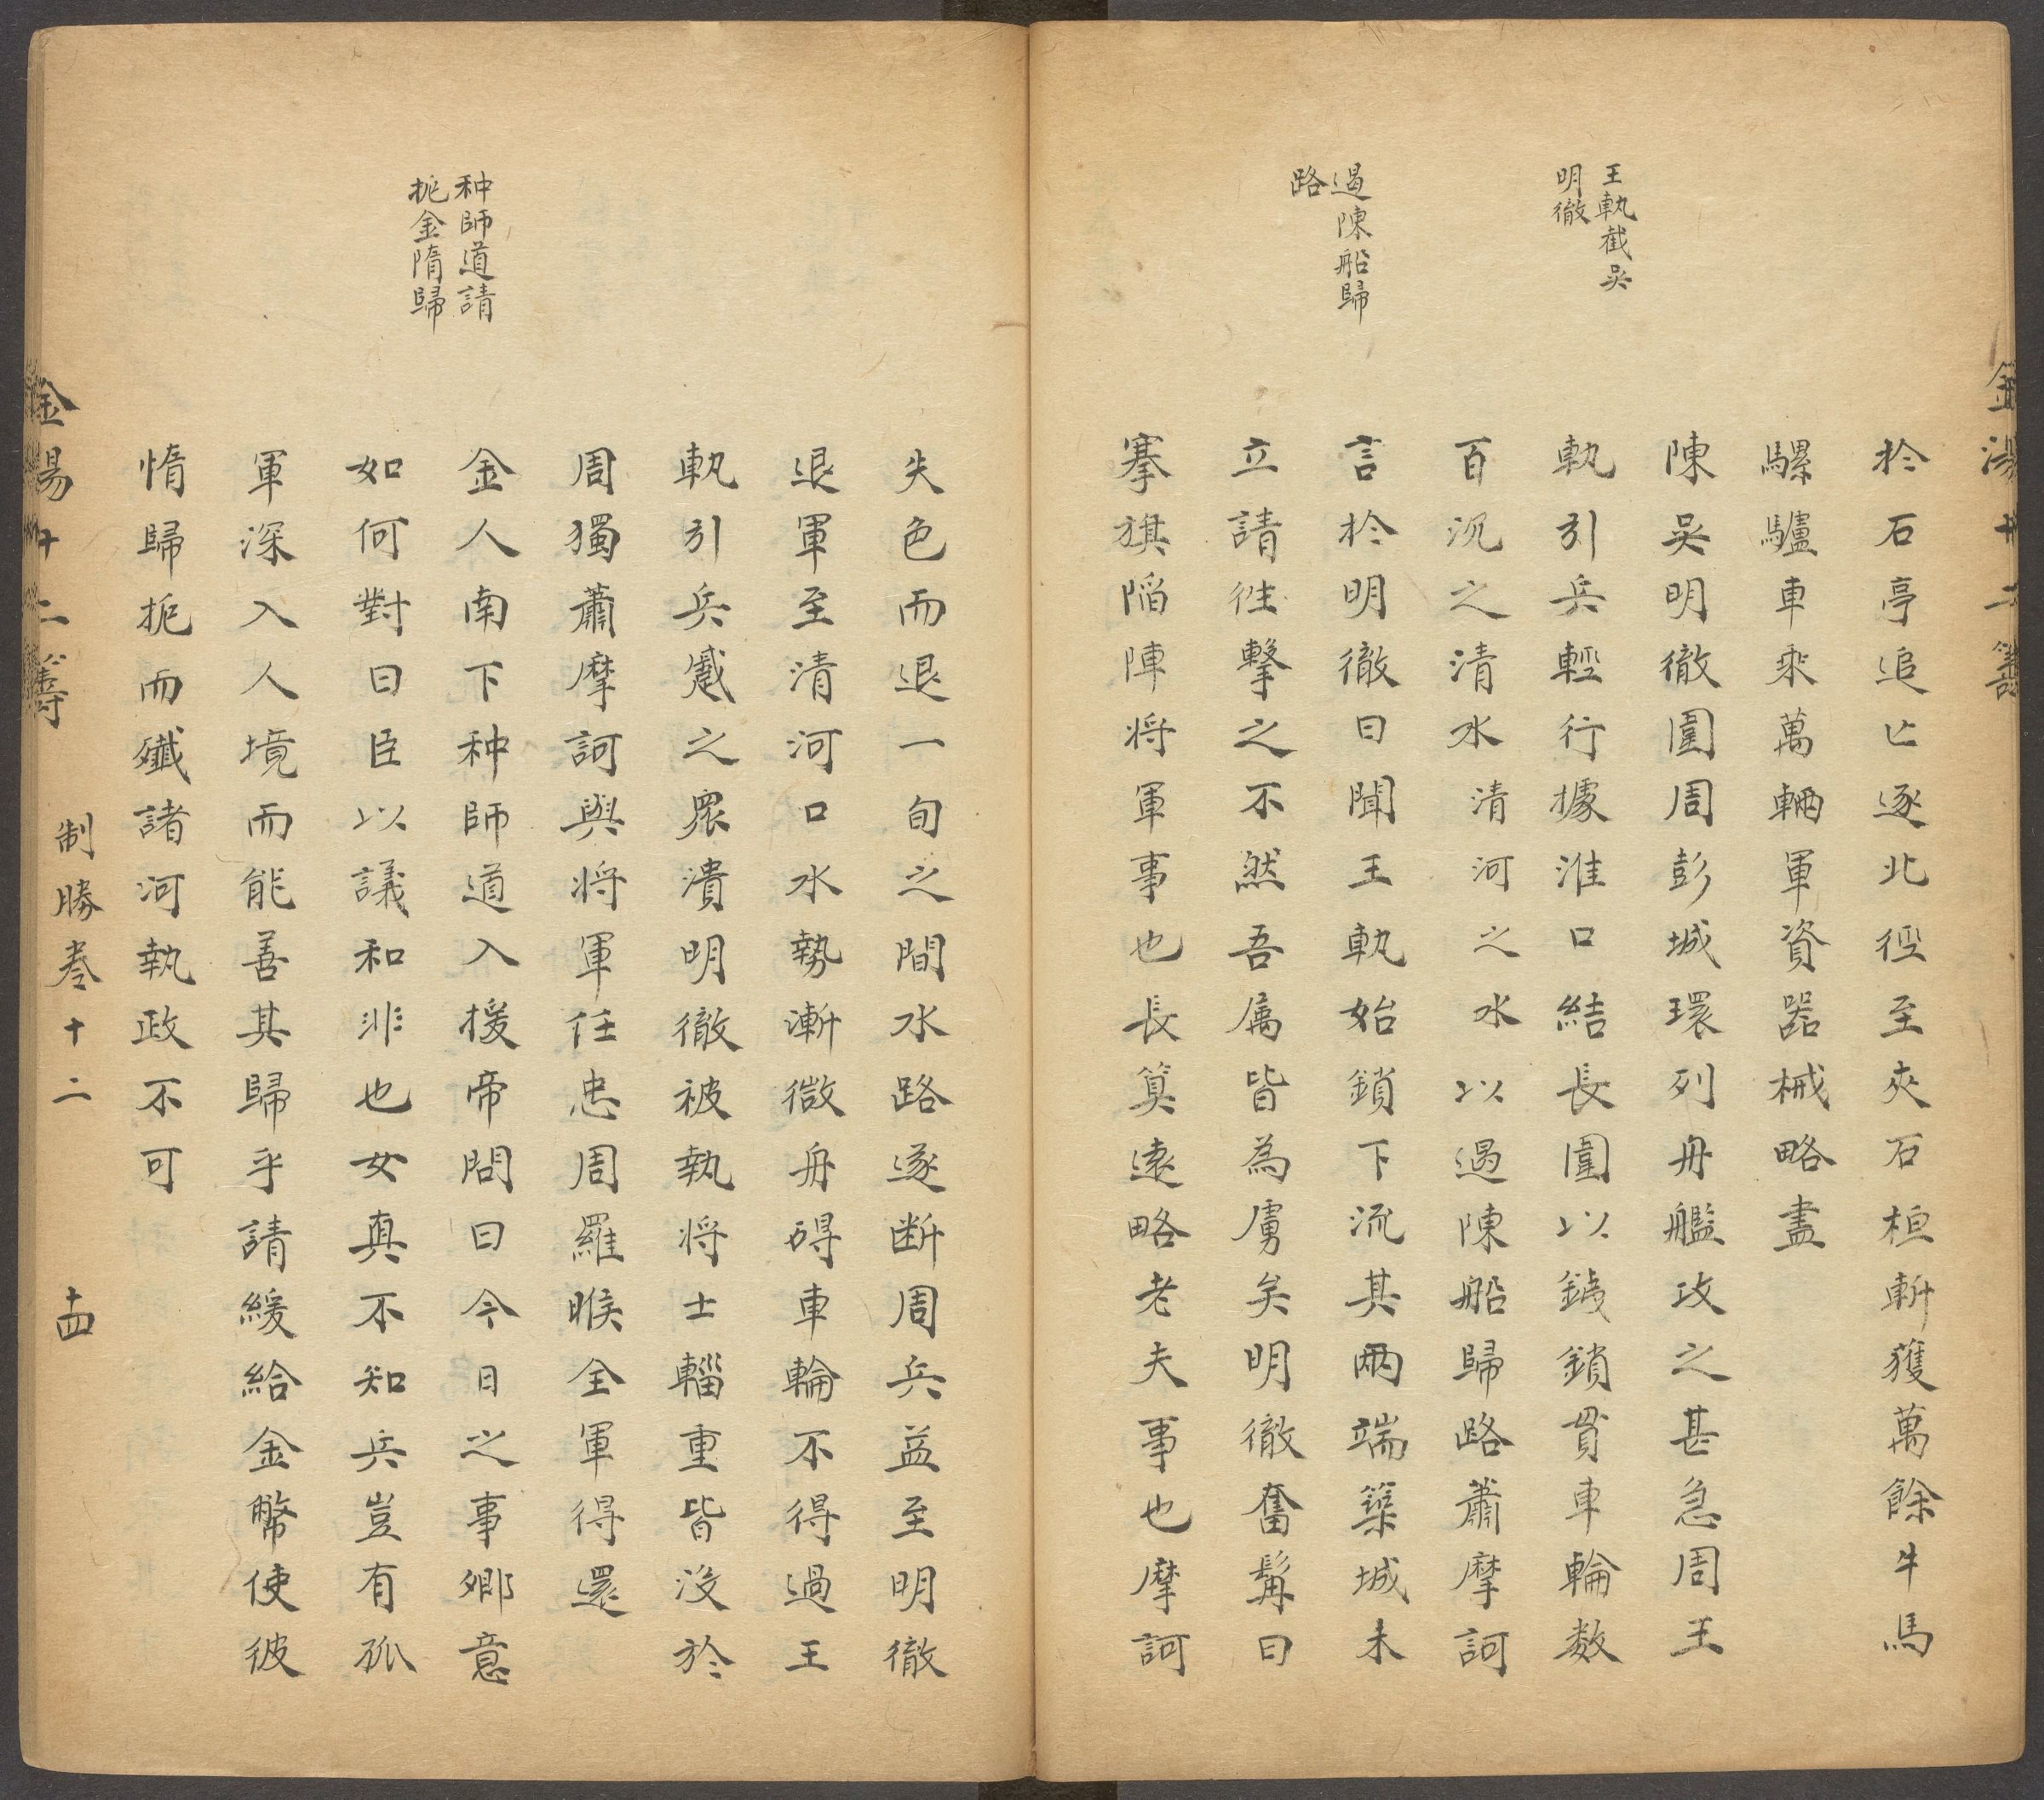 金湯十二籌
王軌截吳
明徹
遏陳船歸
路
於石亭追亡逐北徑至夾石桓斬獲萬餘牛馬
騾驢車乘萬輛軍資器械略盡
陳吳明徹圍周彭城環列舟艦攻之甚急周王
軌引兵輕行據淮口結長圍以鐵鎖貫車輪数
百沉之清水清河之水以遏陳船歸路蕭摩訶
言於明徹曰聞王軌始鎖下流其兩端築城未
立請徃擊之不然吾属皆為虜矣明徹奮髯曰
搴旗陷陣将軍事也長算遠略老夫事也摩訶
种師道請
扼金隋歸
失色而退一旬之間水路遂断周兵益至明徹
退軍至清河口水勢漸微舟碍車輪不得過王
軌引兵蹙之眾潰明徹被執将士輜重皆沒於
周獨蕭摩訶與将軍任忠周羅睺全軍得還
金人南下种師道入援帝問曰今日之事卿意
如何對曰臣以議和非也女真不知兵豈有孤
軍深入人境而能善其歸乎請緩給金幣使彼
惰歸扼而殲諸河執政不可
金湯十二籌
制勝卷十二
十四